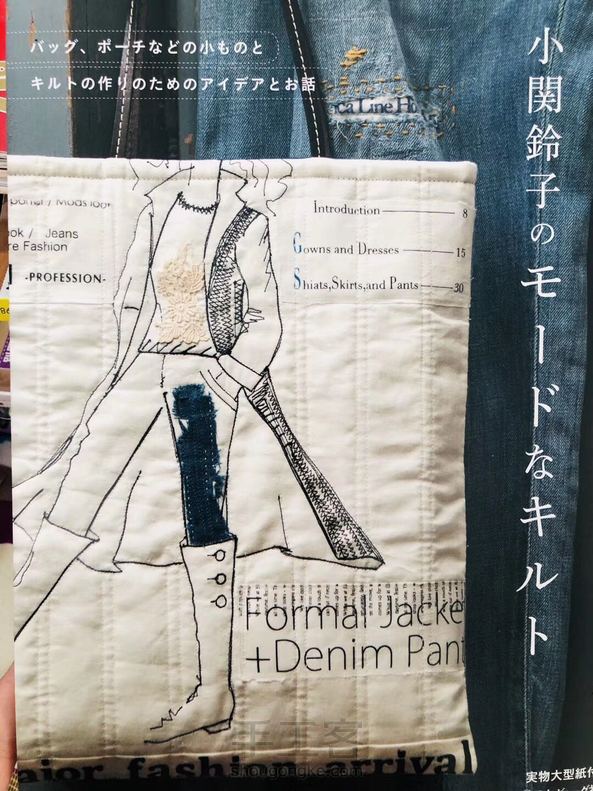 バッグ、ポーチなどの小ものと
キルトの作りのためのアイデアとお話
小関鈴子のモードなキルト
ca Line Ho
ook / Jeans
re Fashion
-PROFESSION-
Introduction 8
Gowns and Dresses 15
Shiats,Skirts,and Pants 30
Formal Jacke
+Denim Pant
ajor fashion arrival
手工客
shougongke.com
実物大型紙付